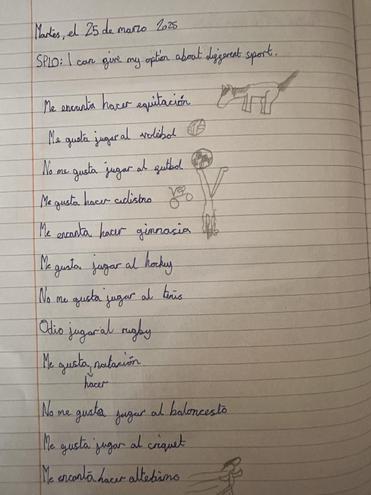 Martes, el 25 de marzo 2025
SPLO: I can give my option about diggerent sport.
Me encanta hacer equitación
Me gusta jugar al voleibol
No me gusta jugar al gutbol
Me gusta hacer ciclistno
Me encanta hacer gimnasia
Me gusta jugar al hockey
No me gusta jugar al tenis
Odio jugar al rugby
Me gusta natación
hacer
No me gusta jugar al baloncesto
Me gusta jugar al criquet
Me encanta hacer altetismo